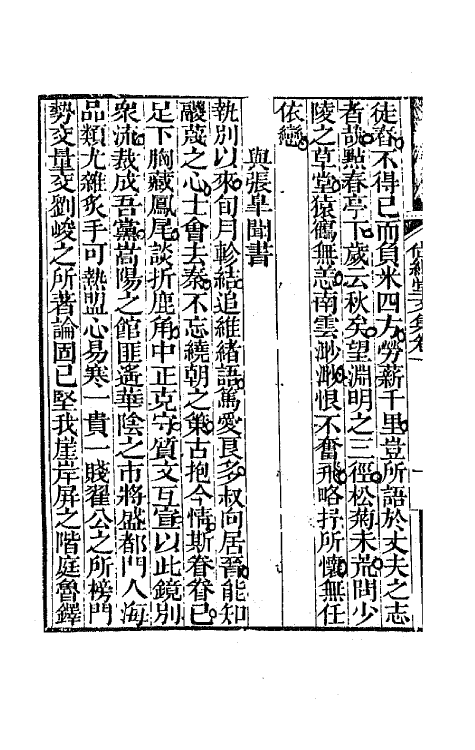 徒舂不得已而負米四方勞薪千里豈所語於丈夫之志
者哉點春亭下歲云秋矣望淵明之三徑松菊未荒問少
陵之草堂猿鶴無恙南雲渺渺恨不奮飛略抒所懷無任
依戀
與張阜聞書
執別以來旬月軫結追維緒語篤愛良多叔向居晉能知
鬷蔑之心士會去秦不忘繞朝之策古抱今情斯眷眷已
足下胸藏鳳尾談折鹿角中正克守質文互宣以此鏡別
衆流裁成吾黨嵩陽之館匪遙華陰之市將盛都門人海
品類尤雜炙手可熱盟心易寒一貴一賤翟公之所榜門
勢交量交劉峻之所著論固已堅我崖岸屏之階庭魯鐸